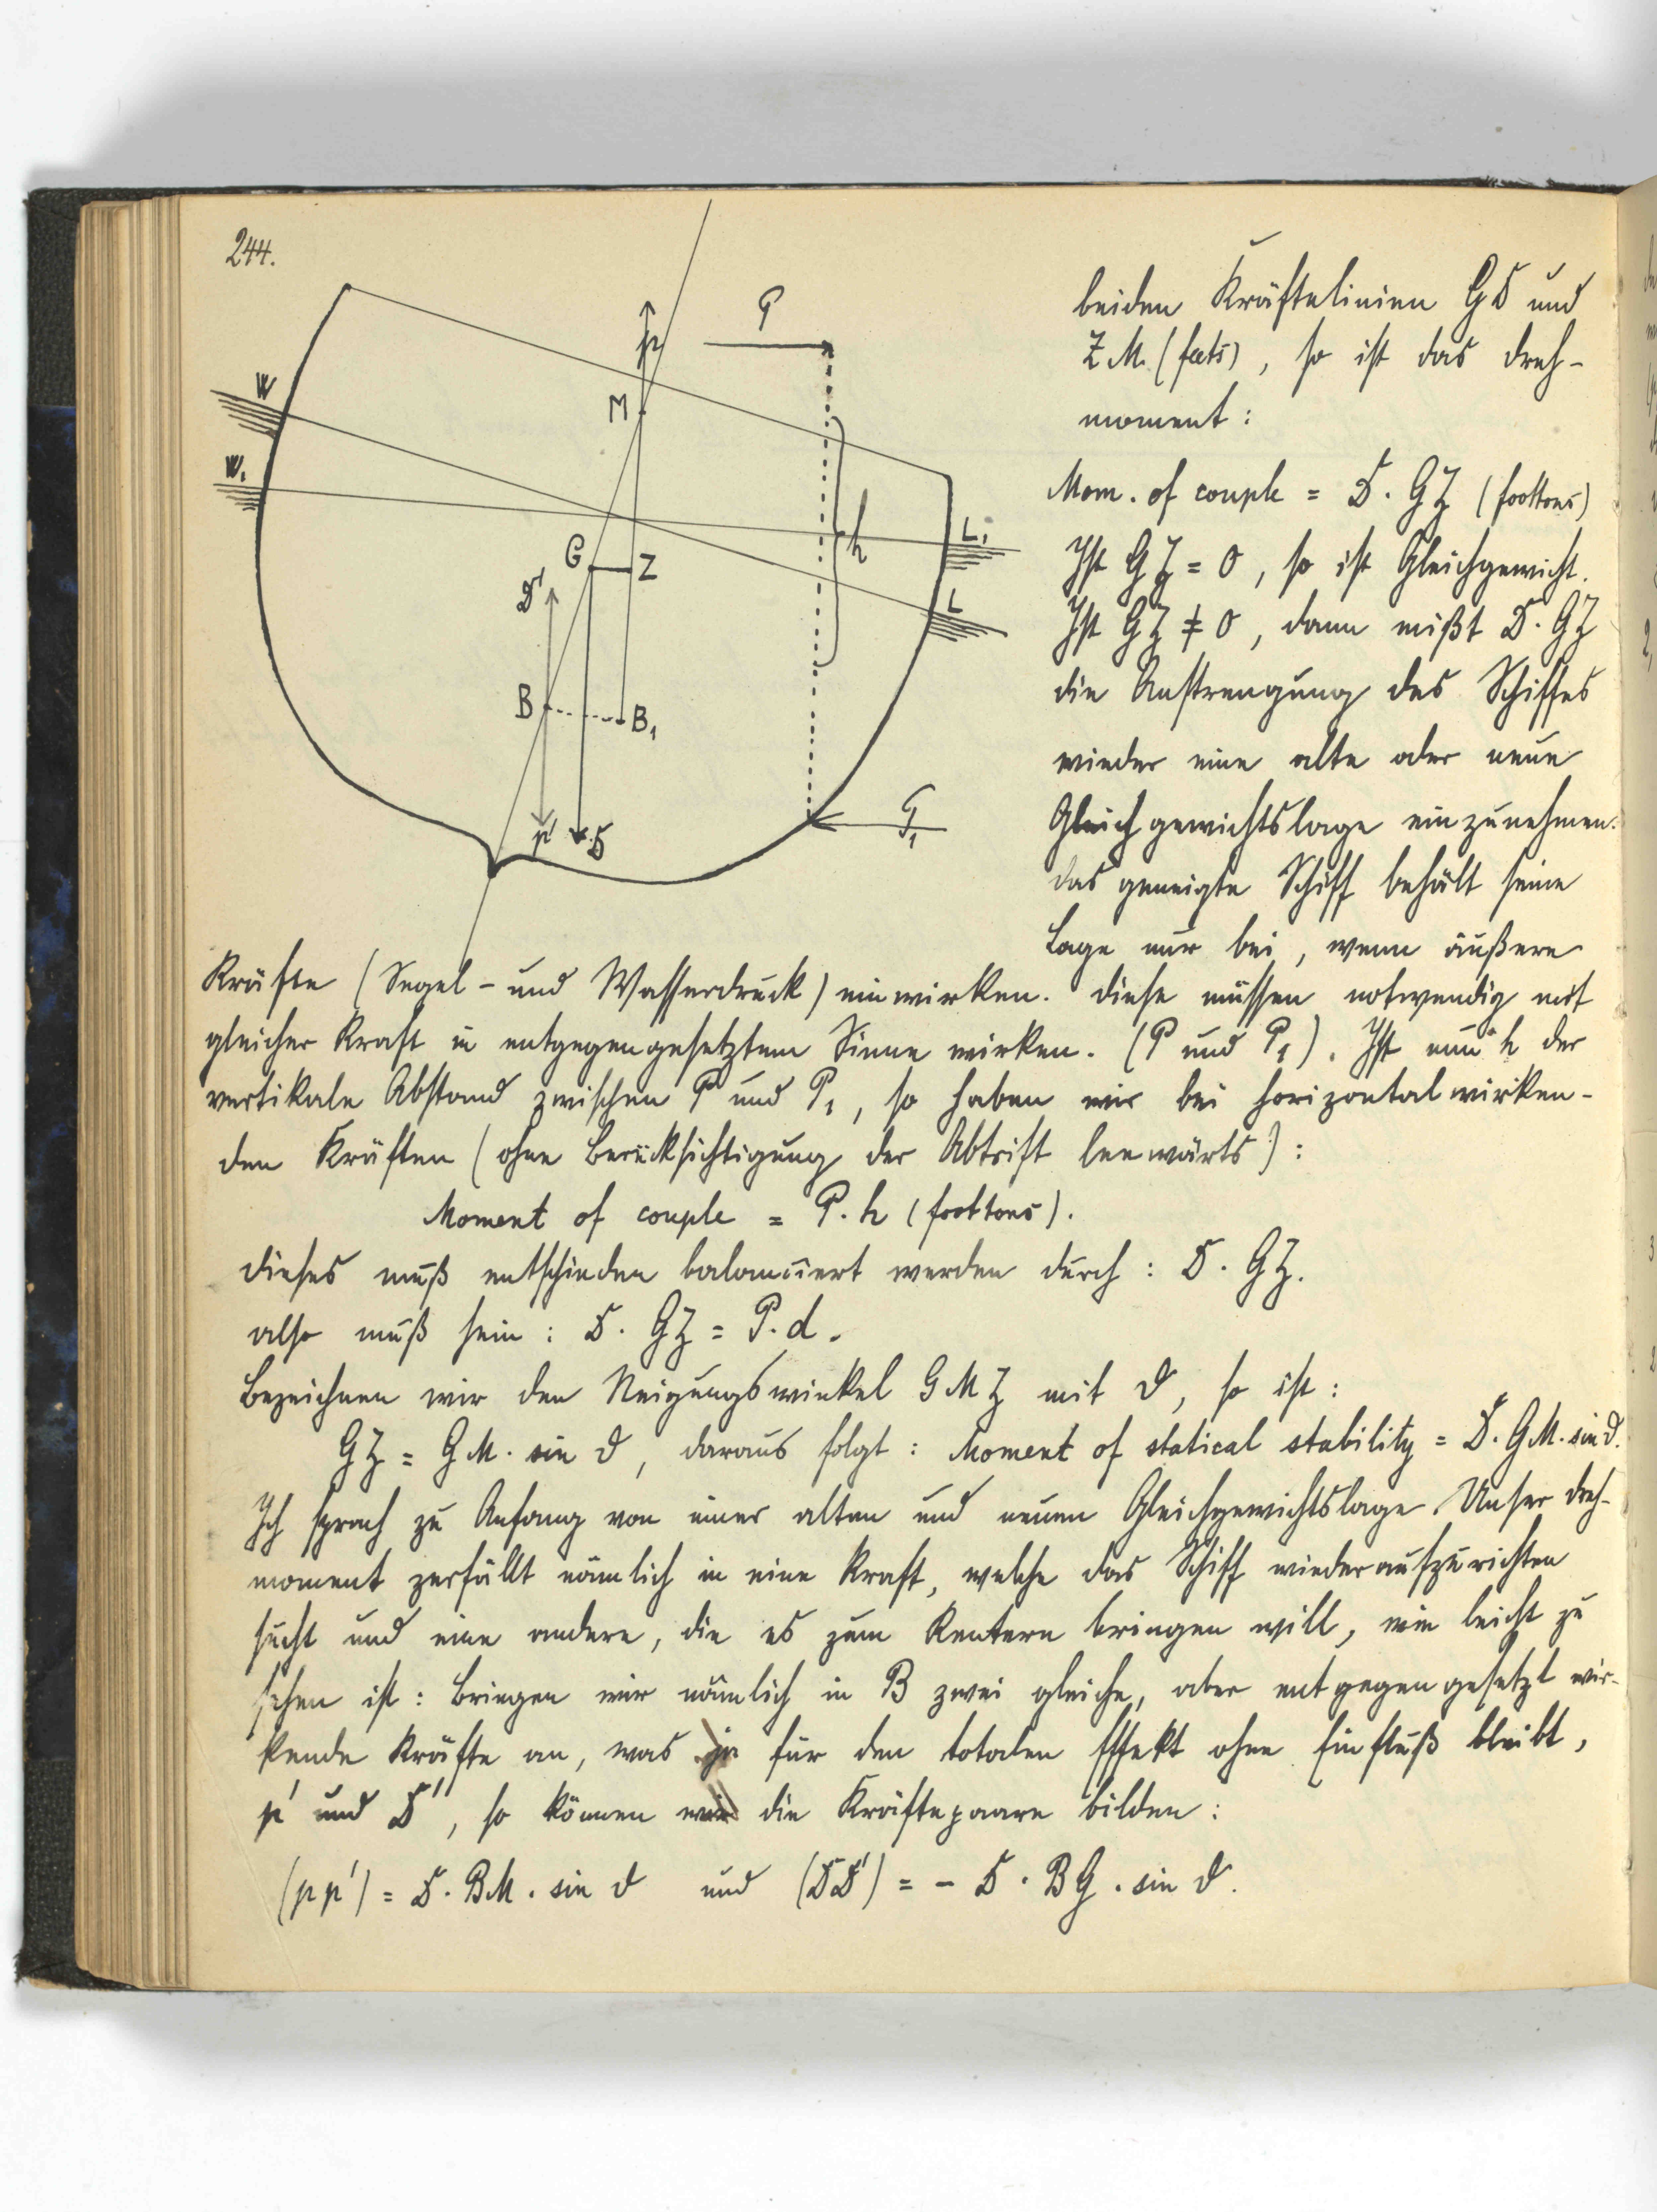 244.
p
P
W
M
W₁
h
L₁
G
Z
D'
L
B
B₁
p'
D
P₁
beiden Kräftelinien GD und
ZM. (feets), so ist das Dreh-
moment:
Mom. of couple = D. GZ (foottons)
Ist GZ = 0, so ist Gleichgewicht.
Ist GZ ≠ 0, dann mißt D. GZ
die Anstrengung des Schiffes
wieder eine alte oder neue
Gleichgewichtslage einzunehmen.
Das geneigte Schiff behält seine
Lage nur bei, wenn äußere
Kräfte (Segel- und Wasserdruck) einwirken. Diese müssen notwendig mit
gleicher Kraft in entgegengesetztem Sinne wirken. (P und P₁). Ist nun h der
vertikale Abstand zwischen P und P₁, so haben wir bei horizontal wirken-
den Kräften (ohne Berücksichtigung der Abtrift leewärts):
Moment of couple = P. h (foottons).
Dieses muß entschieden balanciert werden durch: D. GZ.
also muß sein: D. GZ = P. d.
Bezeichnen wir den Neigungswinkel GMZ mit ϑ, so ist:
GZ = GM. sin ϑ, daraus folgt: Moment of statical stability = D. GM. sin ϑ.
Ich sprach zu Anfang von einer alten und neuen Gleichgewichtslage. Unser Dreh-
moment zerfällt nämlich in eine Kraft, welche das Schiff wiederaufzurichten
sucht und eine andere, die es zum Kentern bringen will, wie leicht zu
sehen ist: Bringen wir nämlich in B zwei gleiche, aber entgegengesetzt wir-
kende Kräfte an, was ja für den totalen Effekt ohne Einfluß bleibt,
p' und D', so können wir die Kräftepaare bilden:
(pp') = D. BM. sin ϑ und (DD') = - D. BG. sin ϑ.